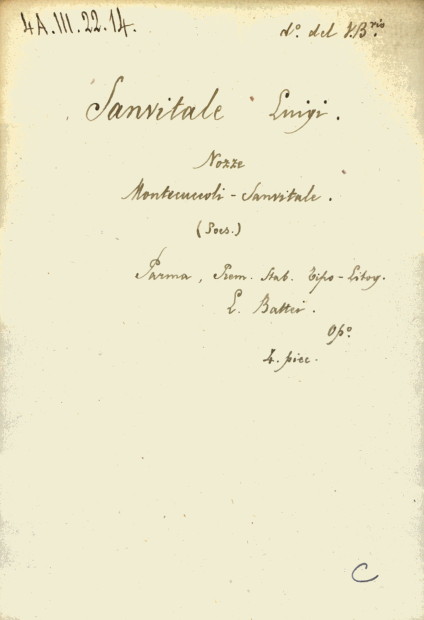 4A.III.22.14.
d.º del V.Bris.
Sanvitale Luigi.
Nozze
Montecuccoli - Sanvitale.
(Poes.)
Parma, Prem. Stab. Tipo-Litog.
L. Battei.
Opº.
4. picc.
C